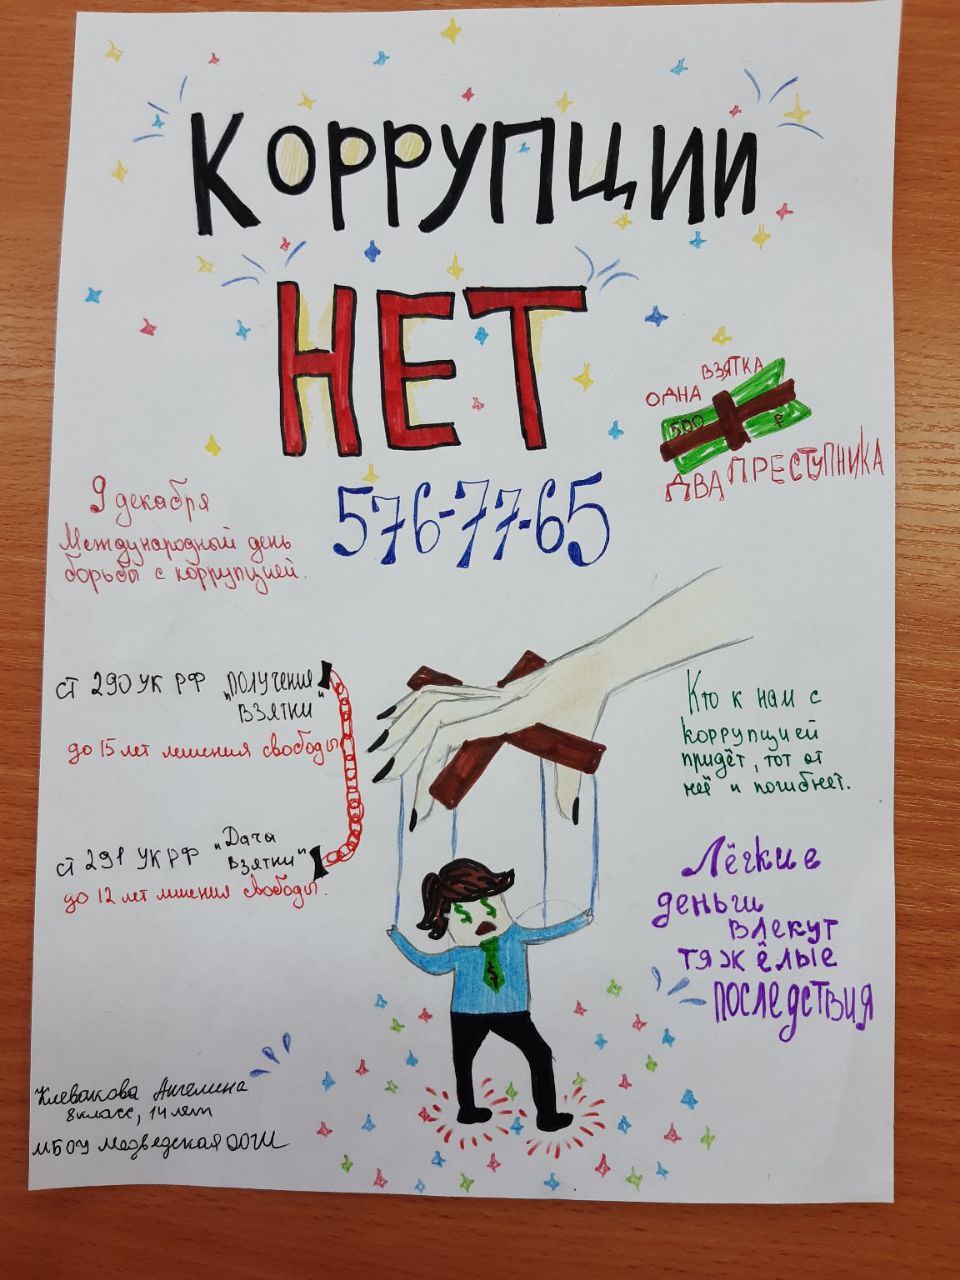 КОРРУПЦИИ
НЕТ
ОДНА ВЗЯТКА
500 ₽
ДВА ПРЕСТУПНИКА
576-77-65
9 декабря
Международный день
борьбы с коррупцией.
ст 290 УК РФ "получение
взятки"
до 15 лет лишения свободы
ст 291 УК РФ "Дача
взятки"
до 12 лет лишения свободы.
Кто к нам с
коррупцией
придёт, тот от
неё и погибнет.
Лёгкие
деньги
влекут
тяжёлые
последствия
$
Клевакова Ангелина
8 класс, 14 лет
МБОУ Медведская ООШ